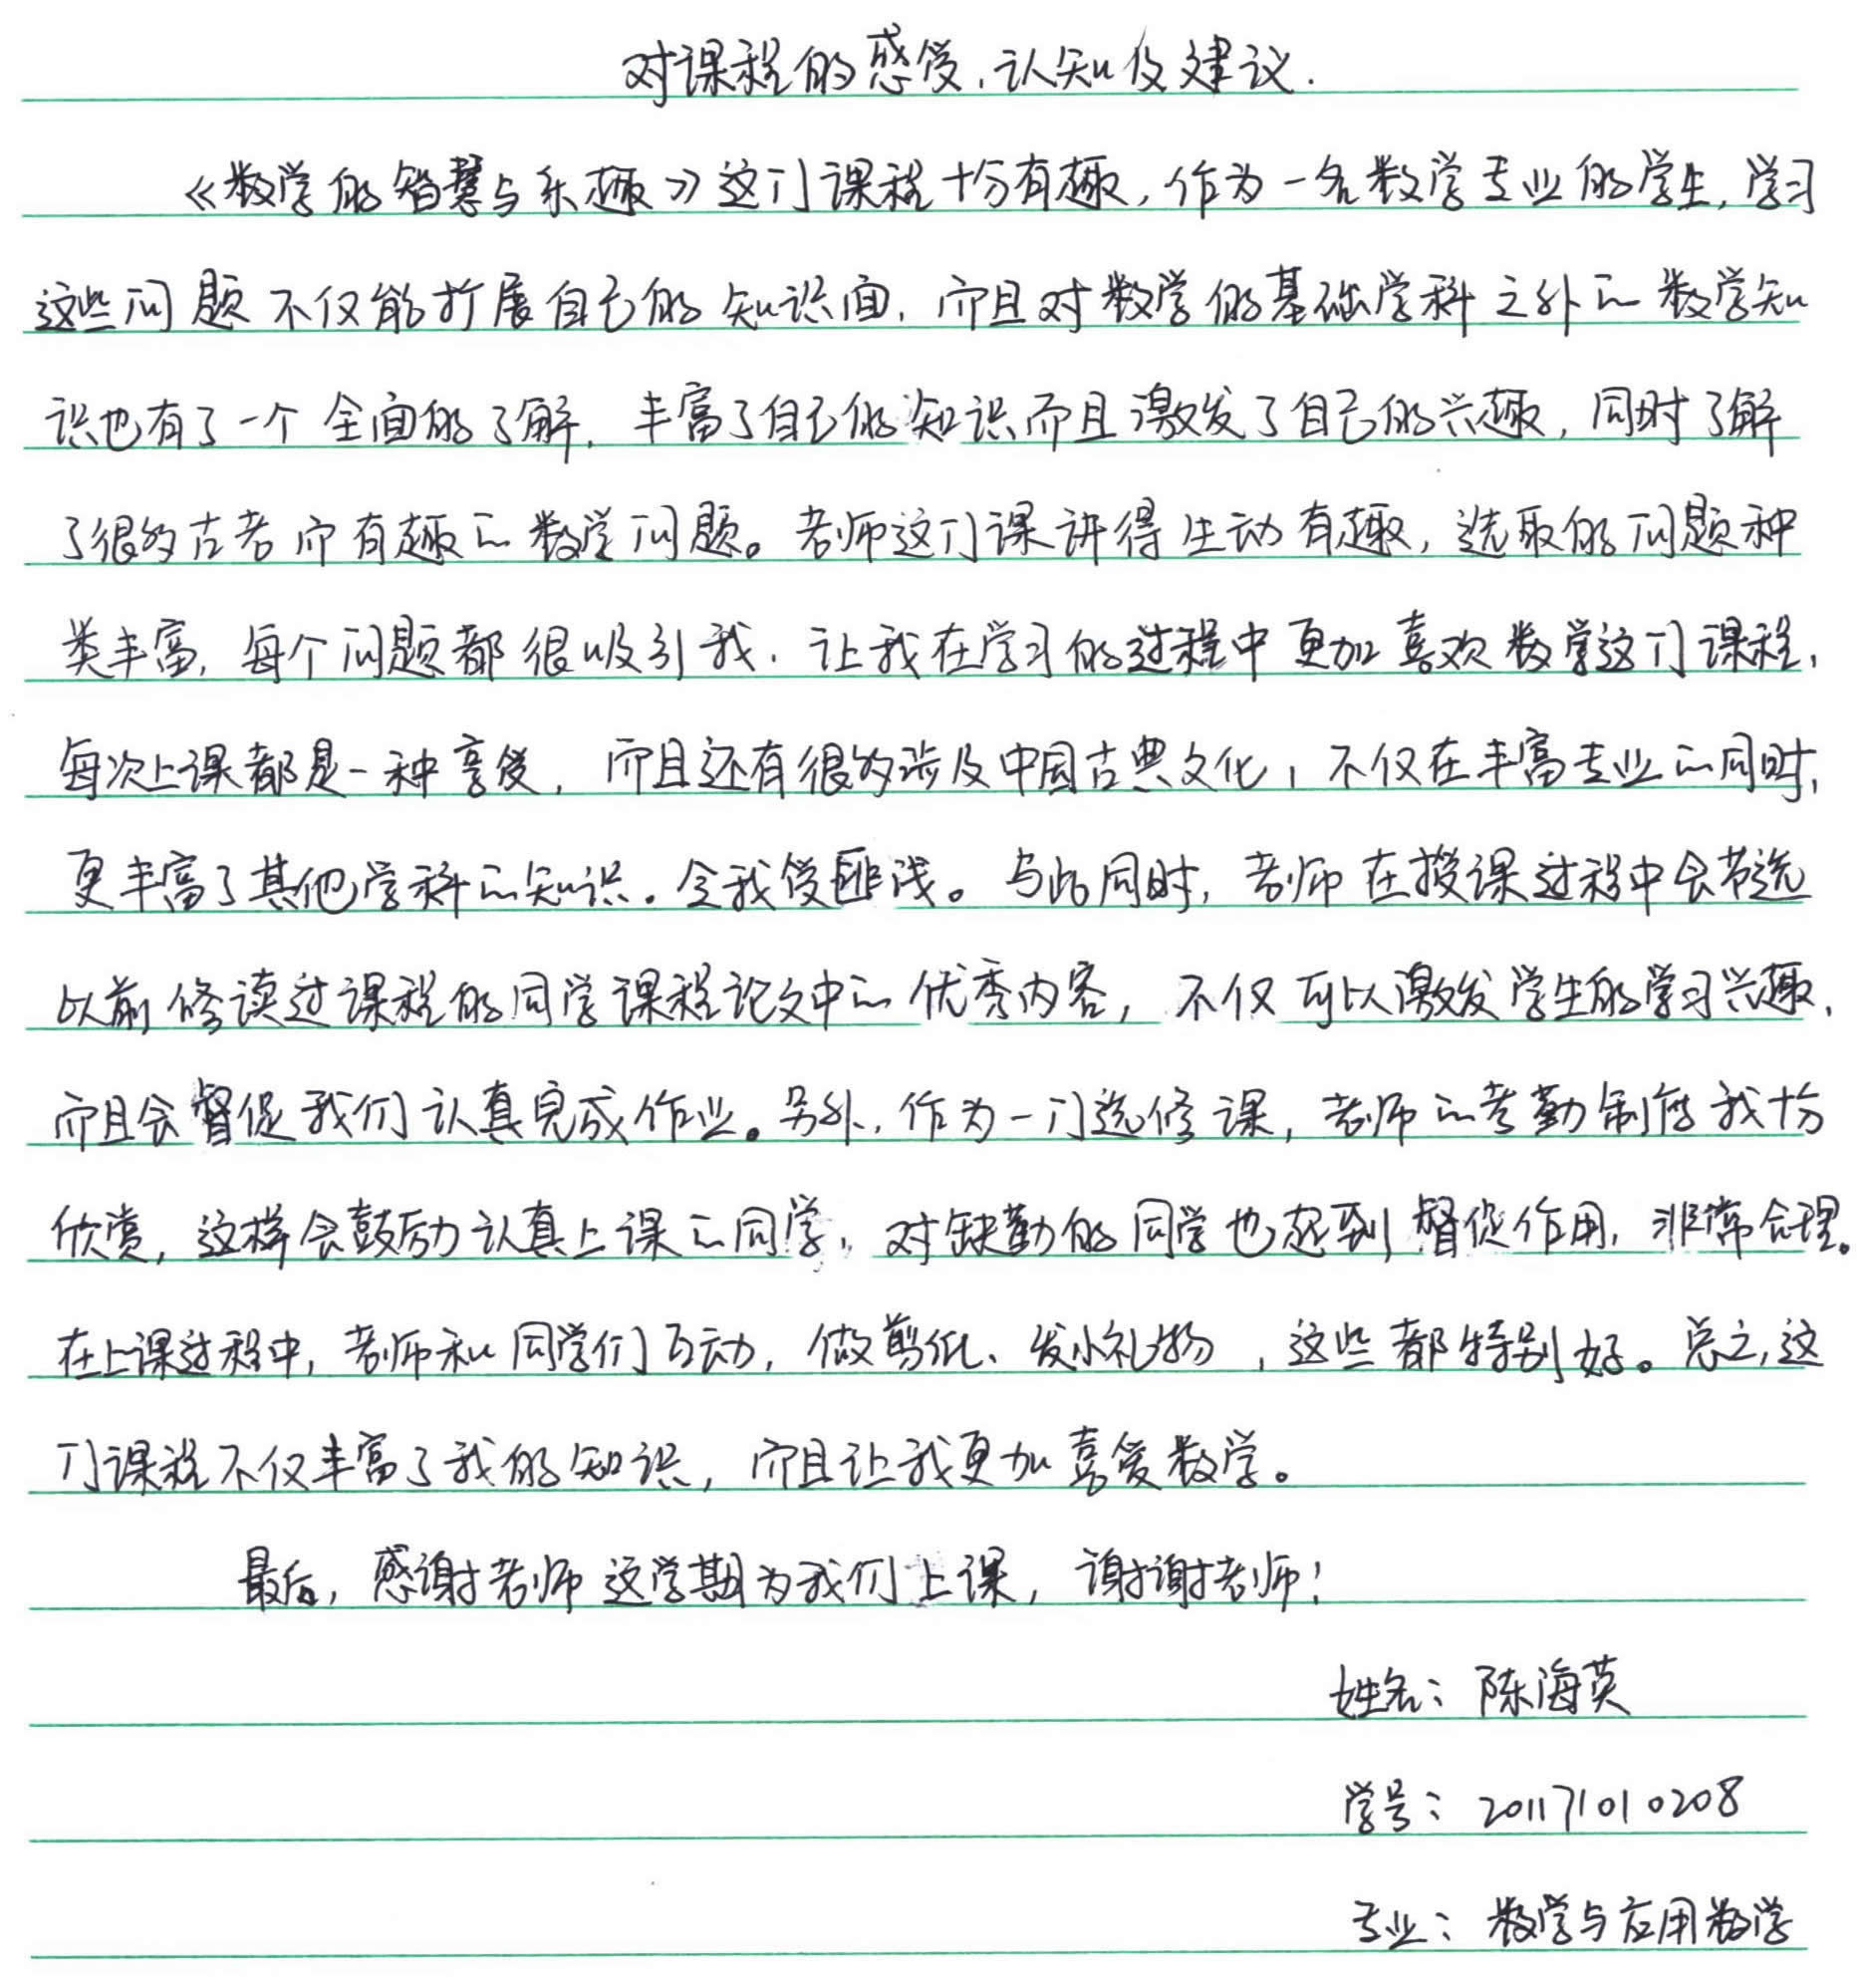 对课程的感受、认知及建议.
《数学的智慧与乐趣》这门课程十分有趣，作为一名数学专业的学生，学习
这些问题不仅能扩展自己的知识面，而且对数学的基础学科之外的数学知
识也有了一个全面的了解，丰富了自己的知识而且激发了自己的兴趣，同时了解
了很多古老而有趣的数学问题。老师这门课讲得生动有趣，选取的问题种
类丰富，每个问题都很吸引我，让我在学习的过程中更加喜欢数学这门课程，
每次上课都是一种享受，而且还有很多涉及中国古典文化，不仅在丰富专业的同时，
更丰富了其他学科的知识。令我受匪浅。与此同时，老师在授课过程中会节选
以前修读过课程的同学课程论文中的优秀内容，不仅可以激发学生的学习兴趣，
而且会督促我们认真完成作业。另外，作为一门选修课，老师的考勤制度我十分
欣赏，这样会鼓励认真上课的同学，对缺勤的同学也起到督促作用，非常合理。
在上课过程中，老师和同学们互动，做剪纸、发小礼物，这些都特别好。总之，这
门课程不仅丰富了我的知识，而且让我更加喜爱数学。
最后，感谢老师这学期为我们上课，谢谢老师！
姓名：陈海英
学号：201171010208
专业：数学与应用数学